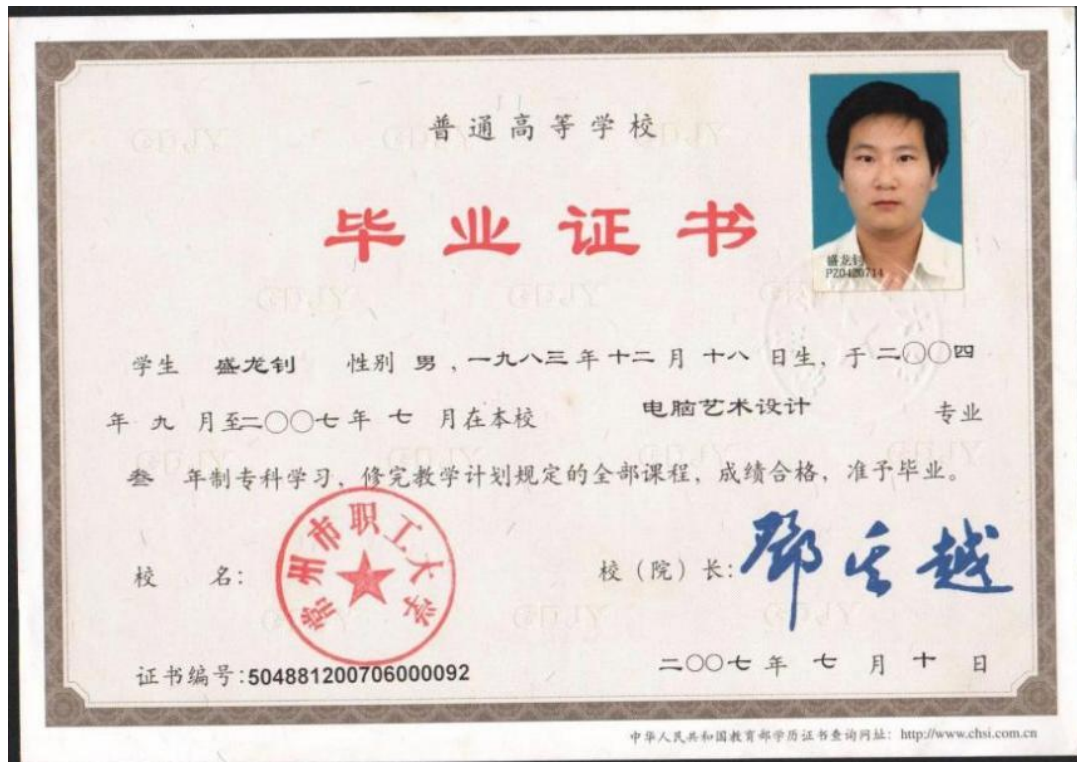 普通高等学校
毕业证书
盛龙钊
PZ0420714
学生 盛龙钊 性别 男,一九八三年十二月十八日生,于二〇〇四
年九月至二〇〇七年七月在本校 电脑艺术设计 专业
叁 年制专科学习,修完教学计划规定的全部课程,成绩合格,准予毕业。
校 名:
常州市职工大学
校(院)长:
证书编号:504881200706000092
二〇〇七年七月十日
中华人民共和国教育部学历证书查询网址:http://www.chsi.com.cn